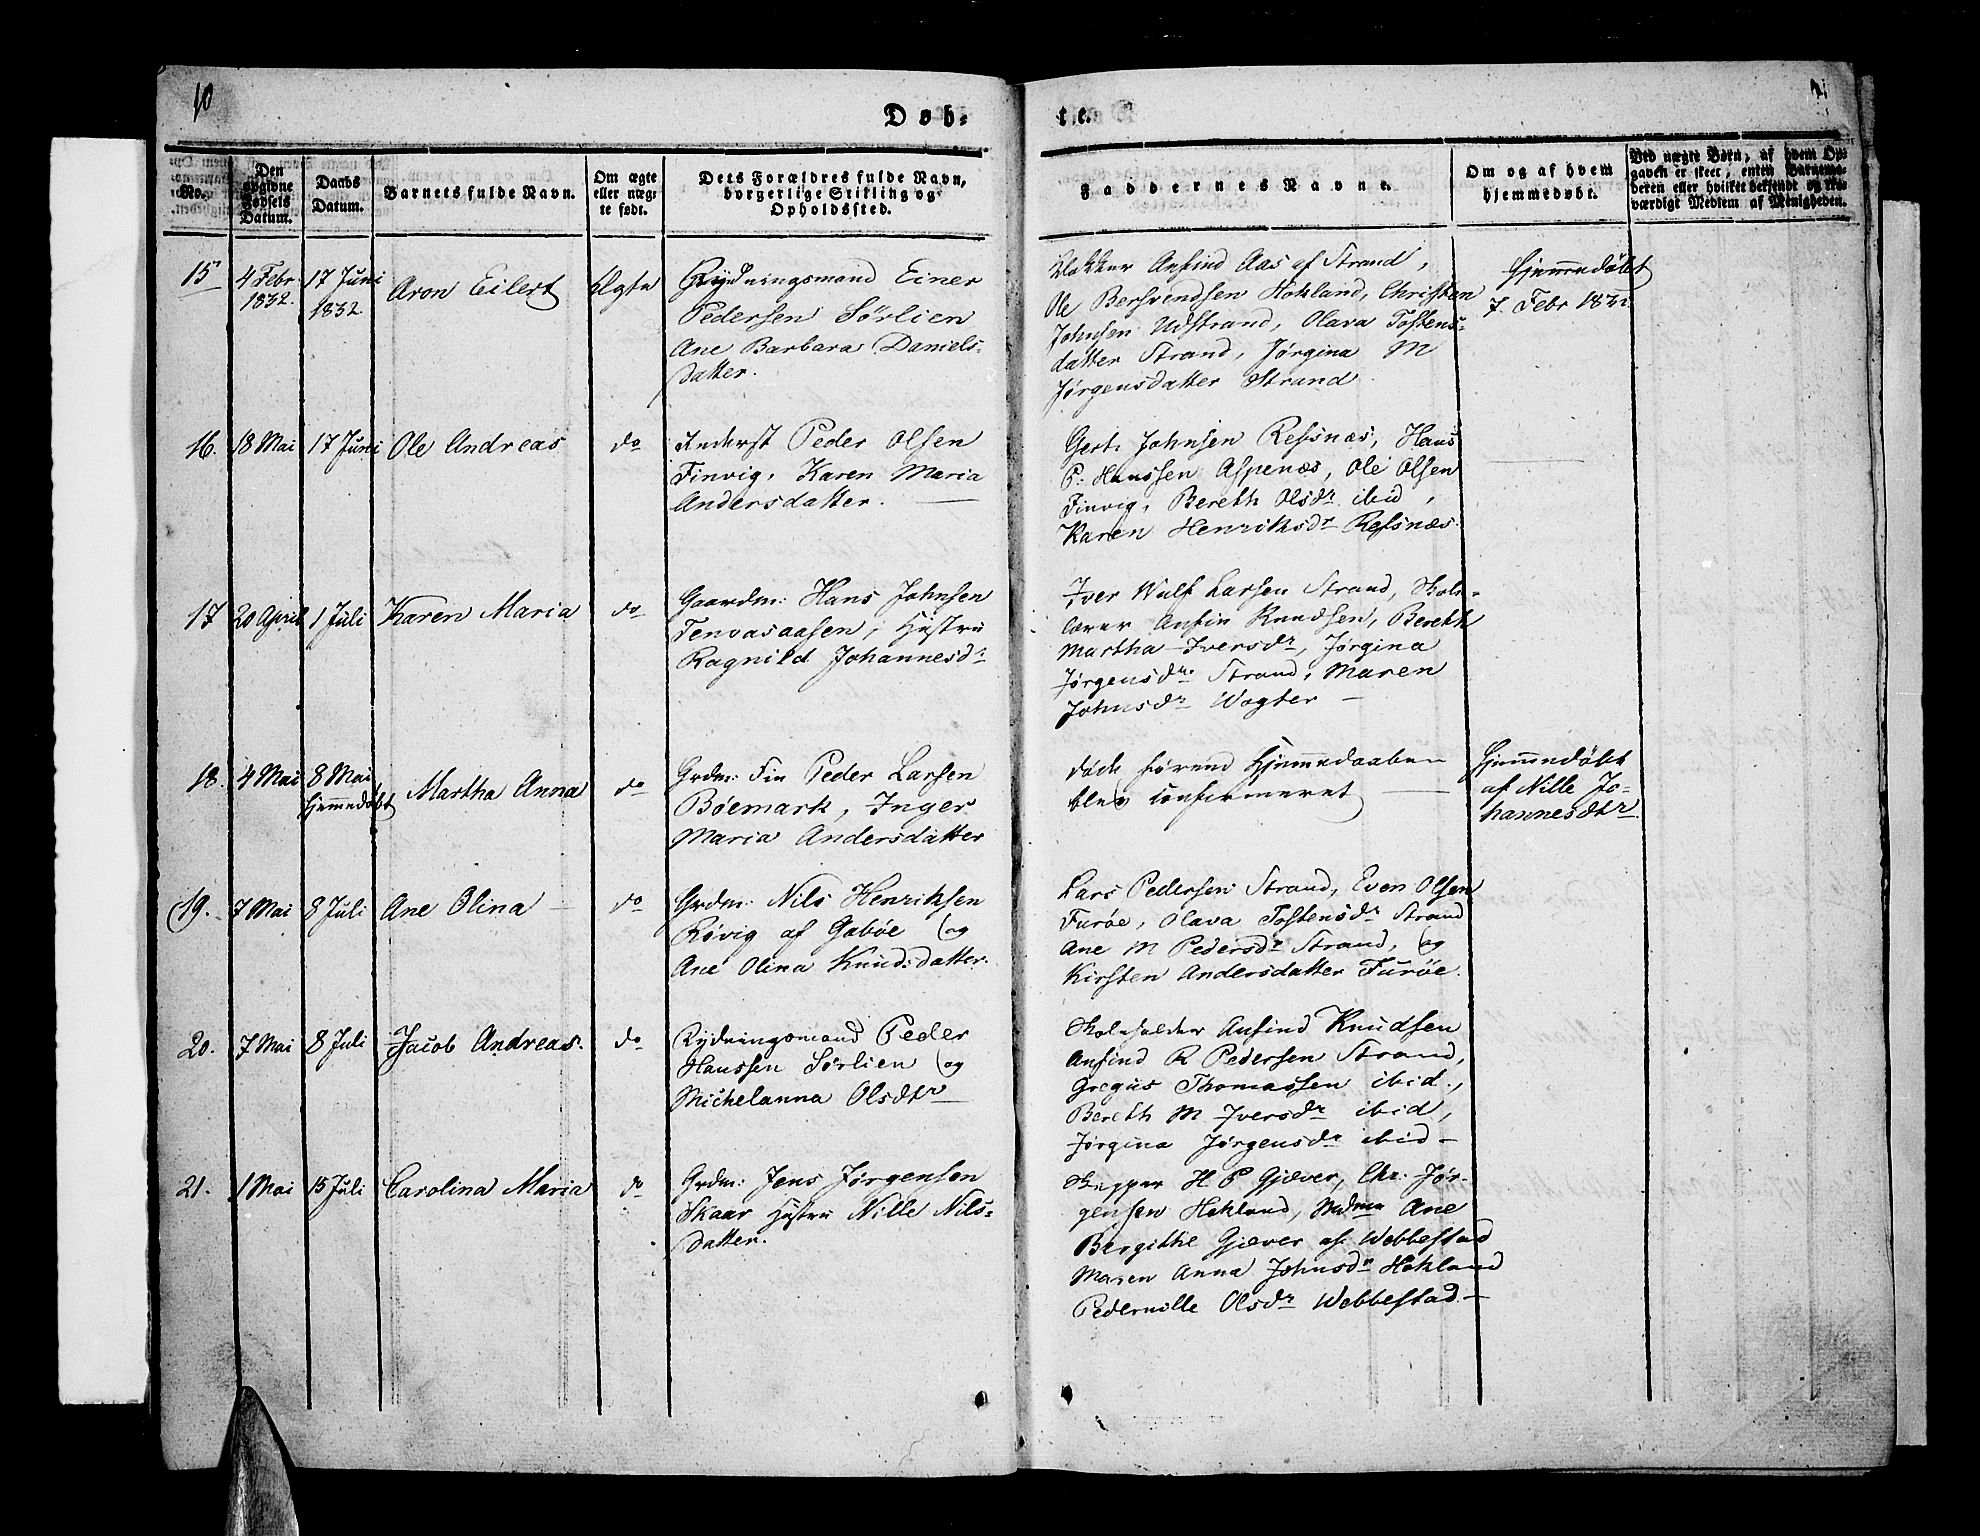 10
Døb-
te.
No.
Den
opgivne
Fødsels
Datum.
Daabs
Datum.
Barnets fulde Navn.
Om ægte
eller uæg-
te født.
Dets Forældres fulde Navn,
borgerlige Stilling og
Opholdssted.
Faddernes Navne.
Om og af hvem
hjemmedøbt.
Ved uægte Børn, af hvem Op-
gaven er skeet, enten Barnemo-
deren eller hvilket bekjendt og tro-
værdigt Medlem af Menigheden.
15
4 Febr
1832.
17 Juni
1832
Aron Eilert
Ægte
Rydningsmand Einer
Pedersen Sørlien
Ane Barbara Daniels-
datter.
Klokker Anfind Aas af Strand,
Ole Bersvendsen Hokland, Christen
Johnsen Udstrand, Olava Tostens-
datter Strand, Jørgina M
Jørgensdatter Strand.
Hjemmedøbt
7 Febr 1832
16.
18 Mai
17 Juni
Ole Andreas
do
Inderst Peder Olsen
Finvig, Karen Maria
Andersdatter.
Gert. Johnsen Resnæs, Hans
P. Hanssen Aspenæs, Ole Olsen
Finvig, Bereth Olsdr ibid,
Karen Henriksdr Resnæs.
17
20 April
1 Juli
Karen Maria
do
Gaardm: Hans Johnsen
Tenvasaasen, Hustru
Ragnild Johannesdr
Iver Wulf Larsen Strand, Skole-
lærer Anfin Knudsen, Bereth
Martha Iversdr, Jørgina
Jørgensdtr Strand, Maren
Johnsdr Vogter
18.
4 Mai
8 Mai
hjemmedøbt
Martha Anna
do
Grdm: Fin Peder Larsen
Bøemark, Inger
Maria Andersdatter
døde førend Hjemmedaaben
blev confirmeret
Hjemmedøbt
af Nille Jo-
hannesdtr.
19.
7 Mai
8 Juli
Ane Olina
do
Grdm: Nils Henriksen
Røvig af Gabøe og
Ane Olina Knudsdatter.
Lars Pedersen Strand, Even Olsen
Furøe, Olava Tostensdr Strand
Ane M Pedersdr Strand, og
Kirsten Andersdatter Furøe.
20.
7 Mai
8 Juli
Jacob Andreas.
do
Rydningsmand Peder
Hanssen Sørlien og
Michelanna Olsdtr
Skoleholder Anfind Knudsen
Anfind R Pedersen Strand,
Gregus Thomassen ibid.,
Bereth M Iversdr ibid,
Jørgina Jørgensdr ibid
21.
1 Mai
15 Juli
Carolina Maria
do
Grdm: Jens Jørgensen
Skaar Hustru Nille Nils-
datter.
Skipper H P Gjæver, Chr. Jør-
gensen Hokland, Ane
Bergithe Gjæver af Webbestad
Maren Anna Johnsdr Hokland
Pedernille Olsdr Webbestad.